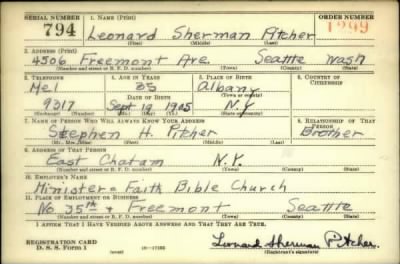 SERIAL NUMBER 1. NAME (Print) ORDER NUMBER
794 Leonard Sherman Pitcher 1299
(First) (Middle) (Last)
2. ADDRESS (Print)
4506 Freemont Ave. Seattle Wash
(Number and street or R. F. D. number) (Town) (County) (State)
3. TELEPHONE 4. AGE IN YEARS 5. PLACE OF BIRTH 6. COUNTRY OF CITIZENSHIP
Mel 35 Albany
DATE OF BIRTH (Town or county)
9317 Sept 19 1905 N.Y.
(Exchange) (Number) (Mo.) (Day) (Yr.) (State or country)
7. NAME OF PERSON WHO WILL ALWAYS KNOW YOUR ADDRESS 8. RELATIONSHIP OF THAT PERSON
Stephen H. Pitcher Brother
(Mr., Mrs., Miss) (First) (Middle) (Last)
9. ADDRESS OF THAT PERSON
East Chatam N.Y.
(Number and street or R. F. D. number) (Town) (County) (State)
10. EMPLOYER'S NAME
Minister Faith Bible Church
11. PLACE OF EMPLOYMENT OR BUSINESS
No 35th & Freemont Seattle
(Number and street or R. F. D. number) (Town) (County) (State)
I AFFIRM THAT I HAVE VERIFIED ABOVE ANSWERS AND THAT THEY ARE TRUE.
REGISTRATION CARD
D. S. S. Form 1 (over) Leonard Sherman Pitcher.
(Registrant's signature)